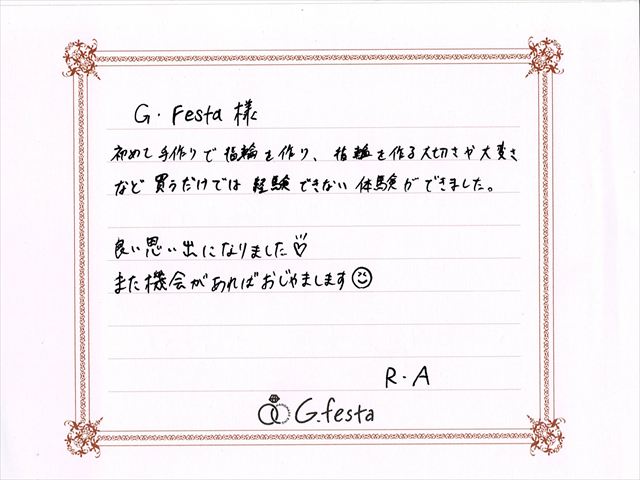 G. Festa 様
初めて手作りで指輪を作り、指輪を作る大切さや大変さ
など買うだけでは経験できない体験ができました。
良い思い出になりました♡
また機会があればおじゃまします☺
R.A
G.festa